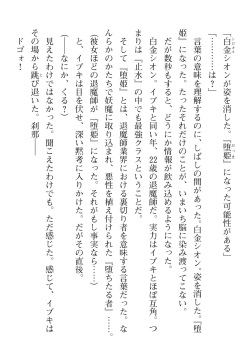 「白金シオンが姿を消した。『堕姫』になった可能性がある」
「…………は？」
言葉の意味を理解するのに、しばしの間があった。白金シオン、姿を消した。『堕
姫』になった。たったそれだけのことが、いまいち脳に染み渡ってこない。
だが数秒もすると、どうにか情報が飲み込めるようになった。
白金シオン。イブキと同い年、22歳の退魔師だ。実力はイブキとほぼ互角。つ
まりは『止水』の中でも最強クラスということだ。
そして『堕姫』とは、退魔師業界における裏切り者を意味する言葉だった。な
んらかのかたちで妖魔に取り込まれ、悪性を植え付けられた『堕ちたる者』……。
（彼女ほどの退魔師が『堕姫』になった、それがもし事実なら……）
と、イブキは目を伏せ、深い黙考に入りかけた。だがその直後。
（――なにか、くる？）
見えたわけではなかった。聞こえたわけでも。ただ感じた。感じて、イブキは
その場から跳び退いた。刹那――
ドゴォ！